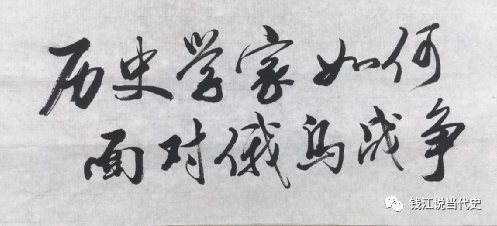 历史学家如何
面对俄乌战争
钱江说当代史